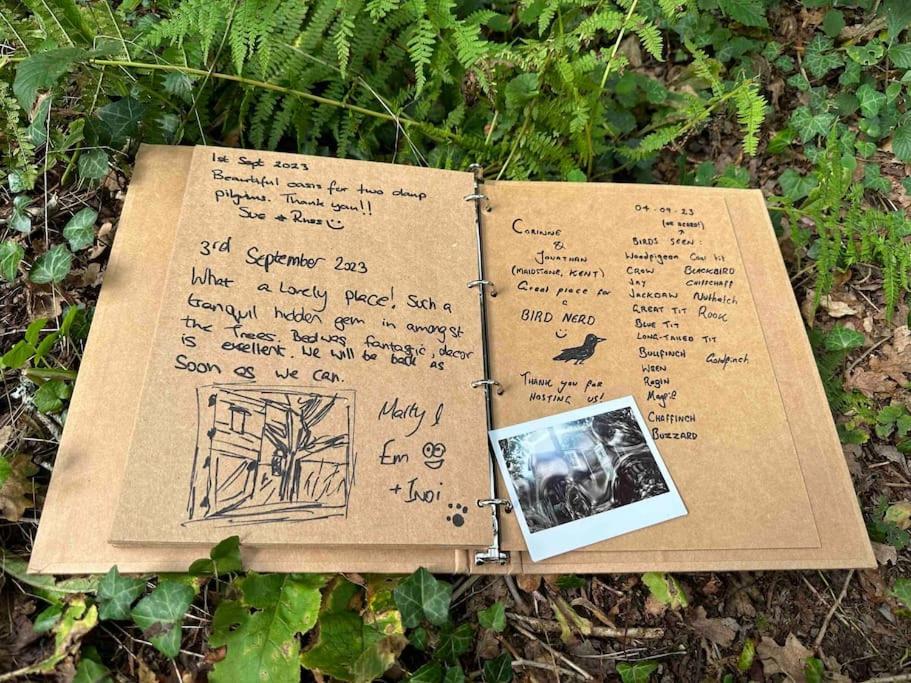 1st Sept 2023
Beautiful oasis for two damp
pilgrims. Thank you!!
Sue & Russ
3rd September 2023
What a lovely place! Such a
tranquil hidden gem in amongst
the Trees. Bed was fantastic, decor
is excellent. We will be back as
Soon as we can.
Marty &
Em
+ Indi
CORINNE
&
JONATHAN
(MAIDSTONE, KENT)
Great place for
a
BIRD NERD
THANK YOU FOR
HOSTING US!
04-09-23
(OR HEARD!)
BIRDS SEEN:
Woodpigeon Coal tit
CROW BLACKBIRD
JAY CHIFFCHAFF
JACKDAW Nuthatch
GREAT TIT Rook
BLUE TIT
LONG-TAILED TIT
BULLFINCH Goldfinch
WREN
Robin
Magpie
CHAFFINCH
BUZZARD